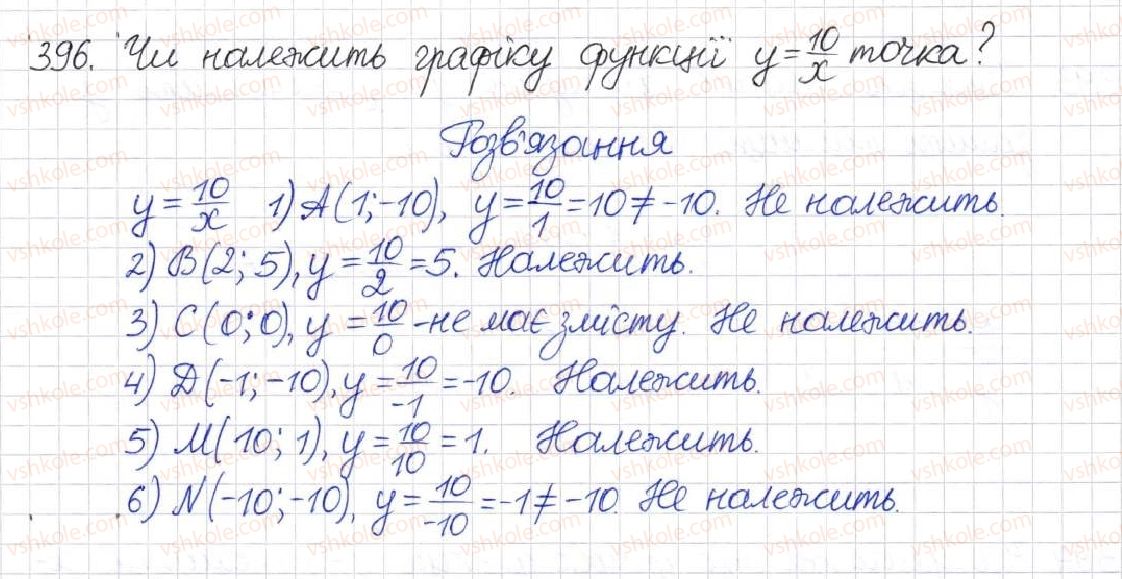 396. Чи належить графіку функції y = 10/x точка?
Розв'язання
y = 10/x 1) A(1; -10), y = 10/1 = 10 ≠ -10. Не належить.
2) B(2; 5), y = 10/2 = 5. Належить.
3) C(0; 0), y = 10/0 - не має змісту. Не належить.
4) Д(-1; -10), y = 10/-1 = -10. Належить.
5) M(10; 1), y = 10/10 = 1. Належить.
6) N(-10; -10), y = 10/-10 = -1 ≠ -10. Не належить.
vshkole.com